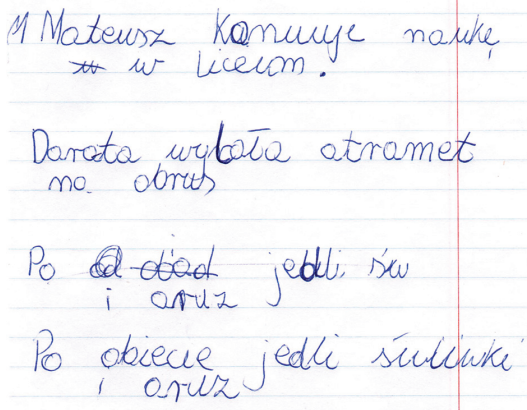 M Mateusz Konuuje naukę
w w liceum.
Darota wylała atramet
na obrus
Po d obad jedli św
i aruz
Po obiecie jedli śuliwki
i oruz